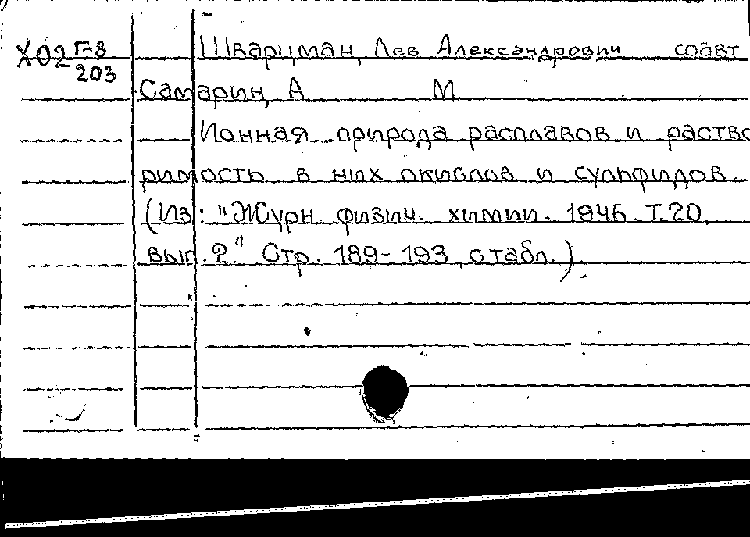 Х02 Г-8 Шварцман, Лев Александрович соавт
203
Самарин, А М
Ионная природа расплавов и раство
римость в них окислов и сульфидов.
(Из: "Журн. физич. химии. 1946. Т.20,
вып. 2" Стр. 189-193, с табл.).